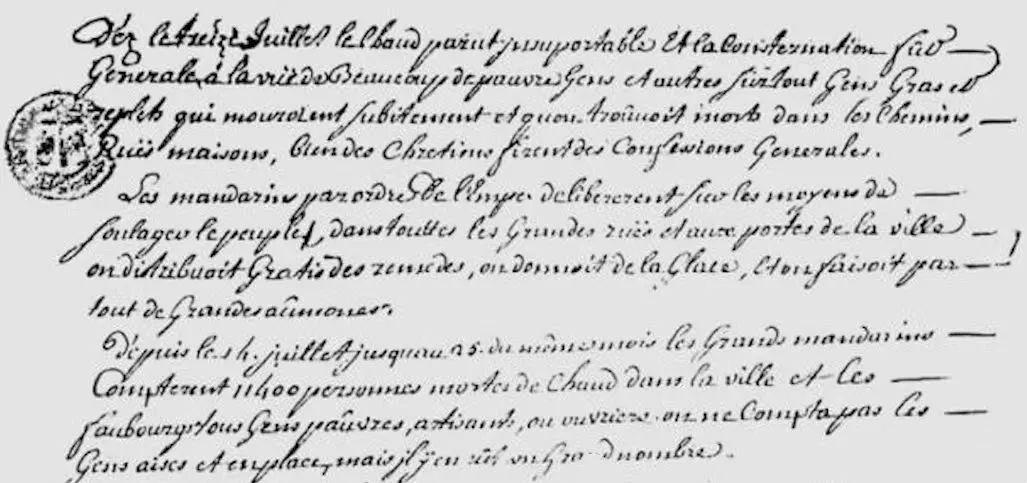 Déz le treize Juillet le Chaud parut jnsuportable Et la Consternation fut
Generale, à la vüe de Beaucoup de pauvre Gens et autres sur tout Gens Gras et
replets qui mouroient subitement et quon trouvoit morts dans les Chemins,
Rües maisons, bien des Chretiens firent des Confessions Generales.
Les mandarins par ordre de l'Empr. delibererent sur les moyens de
soulager le peuple, dans touttes les Grandes rües et aux portes de la ville
on distribuoit Gratis des remedes, on donnoit de la Glace, Et on faisoit par
tout de Grandes aûmones.
Dépuis le 14. juillet jusquau 25. du même mois les Grands mandarins
Compterent 11400 personnes mortes de Chaud dans la ville et les
faubourgs tous Gens pauvres, artisants, ou ouvriers. on ne Compta pas les
Gens aises et en place, mais jl y en eût un Grand nombre.